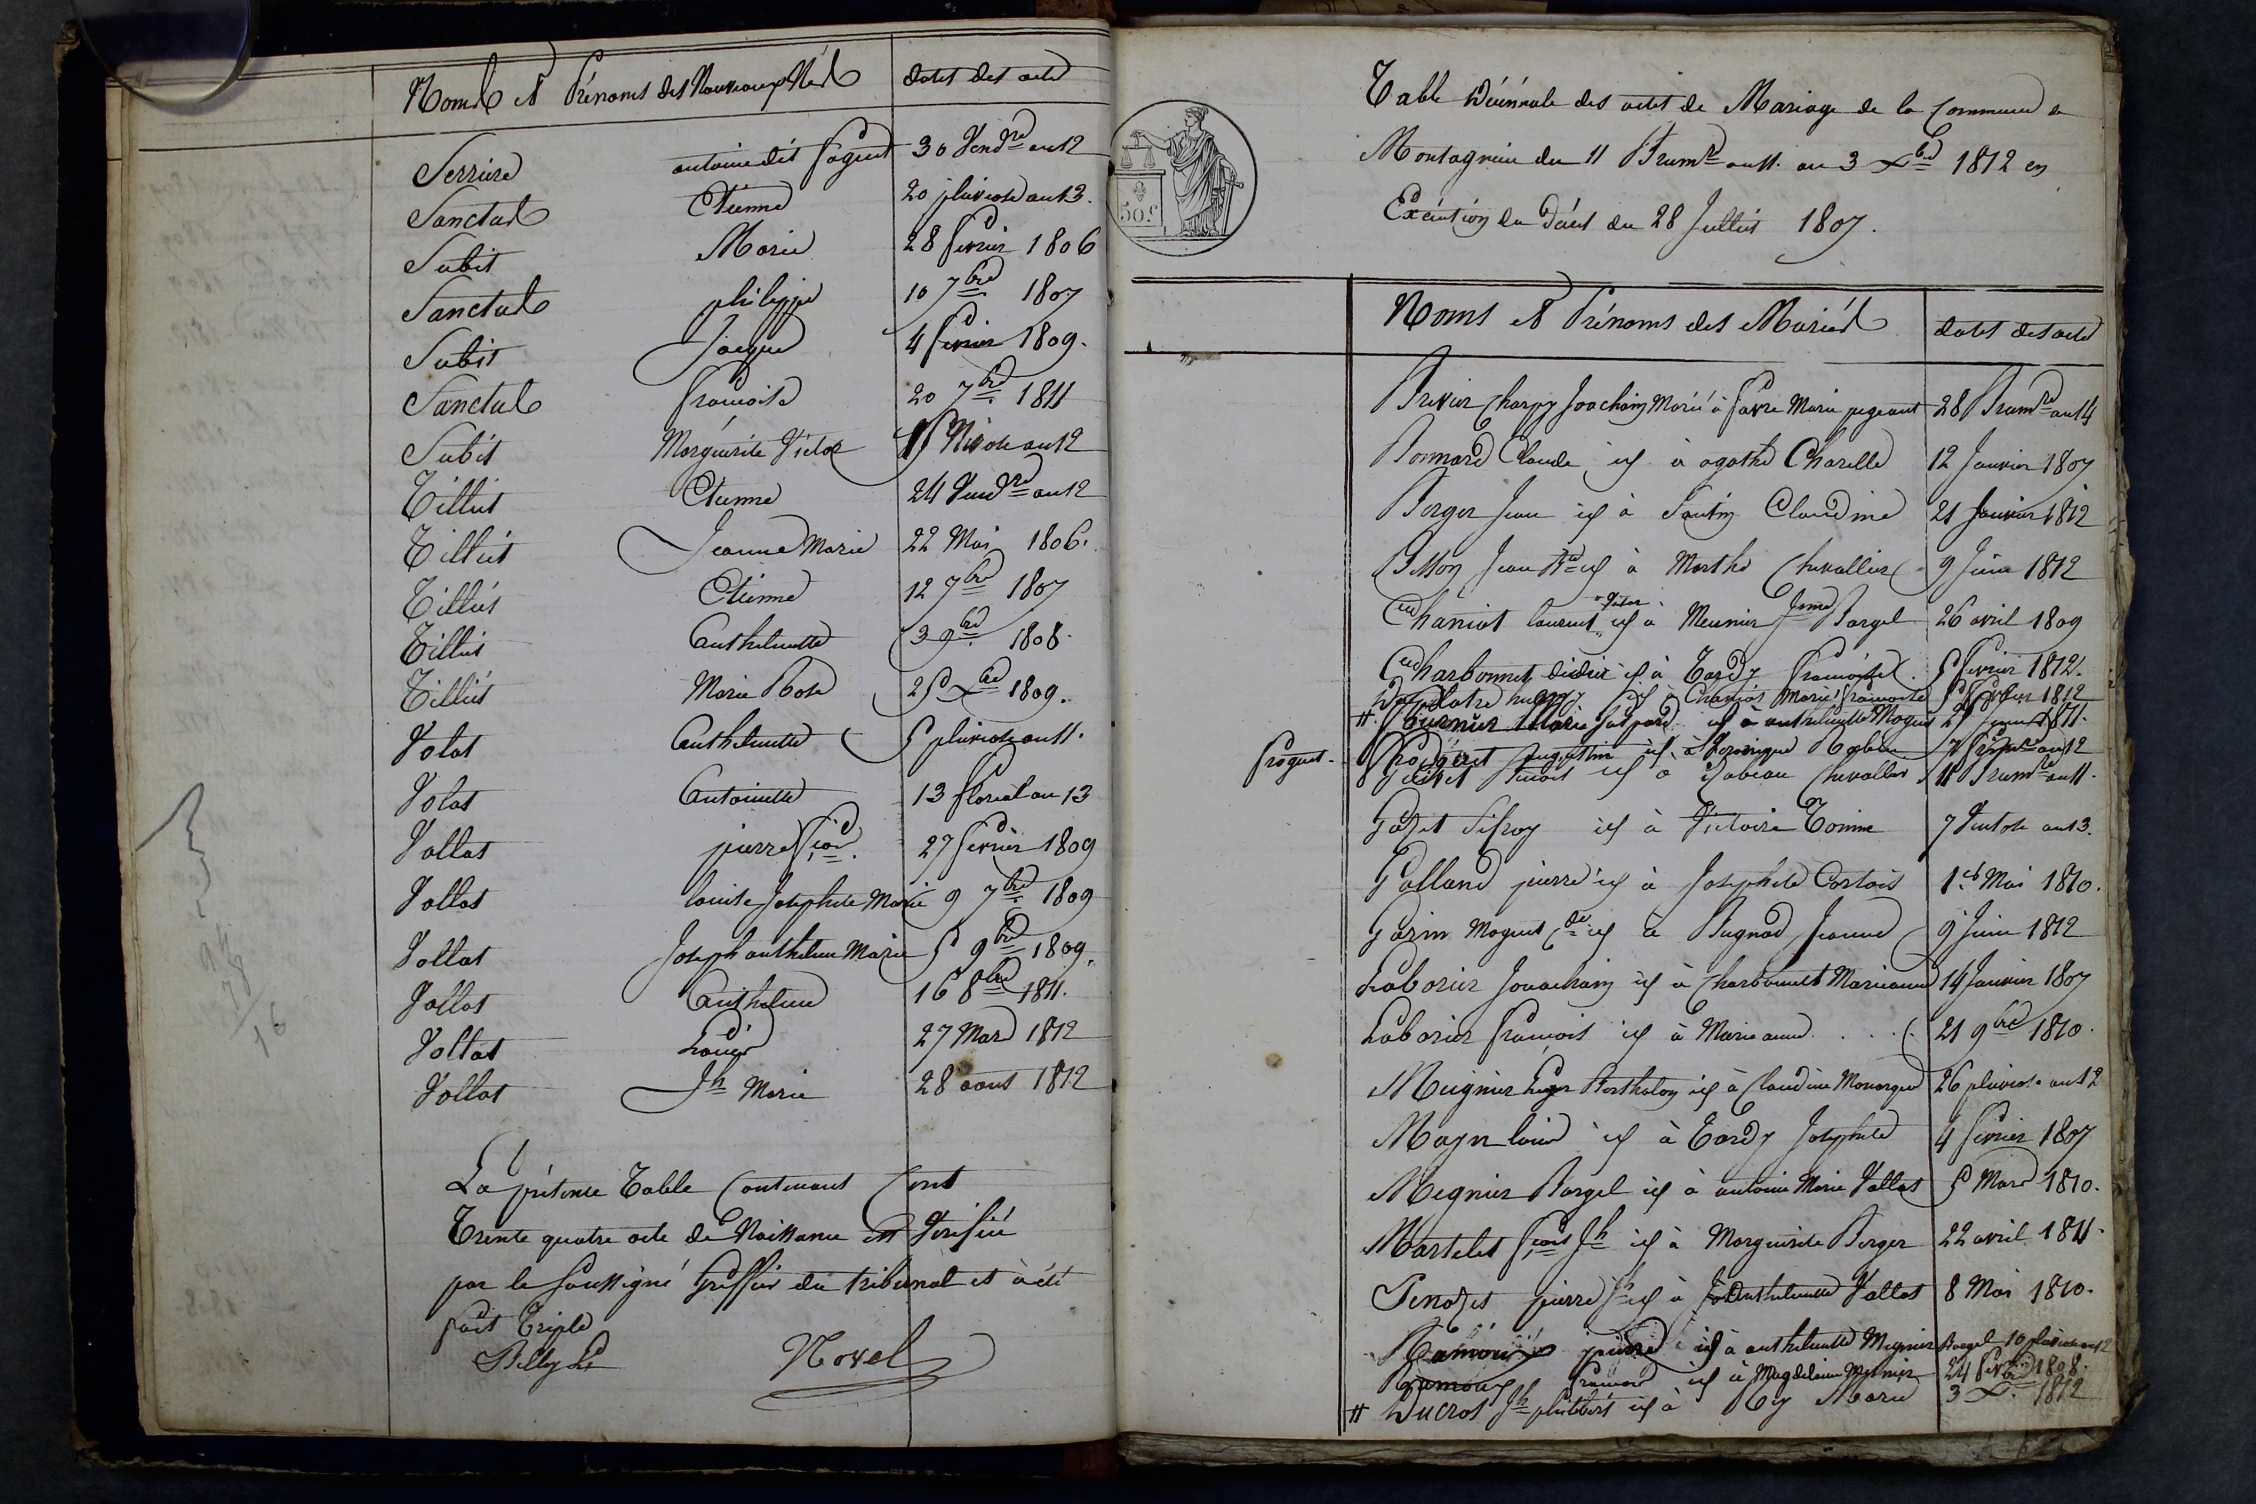 Noms et Prénoms des Nouveaux Nés dates des actes
Serriere antoine dit 30 Vendre an 12
Sanctus Etienne 20 pluviose an 13.
Subit Marie 28 fevrier 1806
Sanctus philippe 10 7bre 1807
Subit Jacque 4 fevrier 1809.
Sanctus francoise 20 7bre 1811
Subit Marguerite Victor Nivose an 12
Tillet Etienne 24 Vendre an 12
Tillet Jeanne Marie 22 Mai 1806.
Tillet Etienne 12 7bre 1807
Tillet Anthelmette 3 9bre 1808.
Tillet Marie Rose 25 Xbre 1809.
Volat Anthelmette 5 pluviose an 11.
Volat Antoinette 13 floreal an 13
Vollat pierre fçois. 27 fevrier 1809
Vollat louise Josephete Marie 9 7bre 1809
Vollat Joseph anthelme Marie 5 9bre 1809.
Vollat Anthelme 16 8bre 1811.
Vollat Louis 27 Mars 1812
Vollat Jh Marie 28 aout 1812
94
78
16
La présente Table Contenant Cent
Trente quatre acte de Naissance est Verifiée
par le Soussigné Greffier du tribunal et a été
fait Triple
Novel
Table Décénnale des actes de Mariage de la Commune de
Montagnieu du 11 Brumre an 11. au 3 Xbre 1812 en
Exécution du Décret du 28 Juillet 1807.
50 c
Noms et Prénoms des Mariés dates des actes
Brivier Charpy Joachim Marié à favre Marie pegeant 28 Brumre an 14
Bonnard Claude id à agathe Charelle 12 Janvier 1807
Berger Jean id à Santin Claudine 21 Janvier 1812
Bisson Jean Bte id à Marthe Chevallier 9 Juin 1812
Chaniot laurent Victor id à Meunier Jnne Bargel 26 avril 1809
Charbonnet didier id à Tardy francoise. 5 fevrier 1812.
id à Chaniot Marie francoise 5 fevrier 1812
# fournier Marie Gaspard id à anthelmette Moguet 21 Janvier 1811.
froguet - froguet Augustin id à Véronique an 12
Guitet Benoit id à Isabeau Chevallier 11 Brumre an 11.
Godet Sifroy id à Victoire Tomme 7 Ventose an 13.
Galland pierre id à Josephete Cortois 1er Mai 1810.
Garin Moguet Cde id à Bugnod Jeanne 9 Juin 1812
Laborier Jouachaim id à Charbonnet Marieanne 14 Janvier 1807
Laborier francois id à Marieanne . . . 21 9bre 1810.
Meignier Leger Barthelon id à Claudine Monarque 26 pluviose an 12
Mayn louis id à Tardy Josephete 4 fevrier 1807
Megnier Bargel id à antoine Marie Vallet 5 Mars 1810.
Martelet fçois Jh id à Marguerite Berger 22 avril 1811.
Penozet pierre Jh id à Anthelmette Vallet 8 Mai 1810.
Ramoux pierre id à anthelmette Megnier Bargel 10 pluviose an 12
Ramoux francois id à Magdelaine Meunier 24 fevrier 1808.
# Ducros Jh philibert id à Rey Marie 3 Xbre. 1812